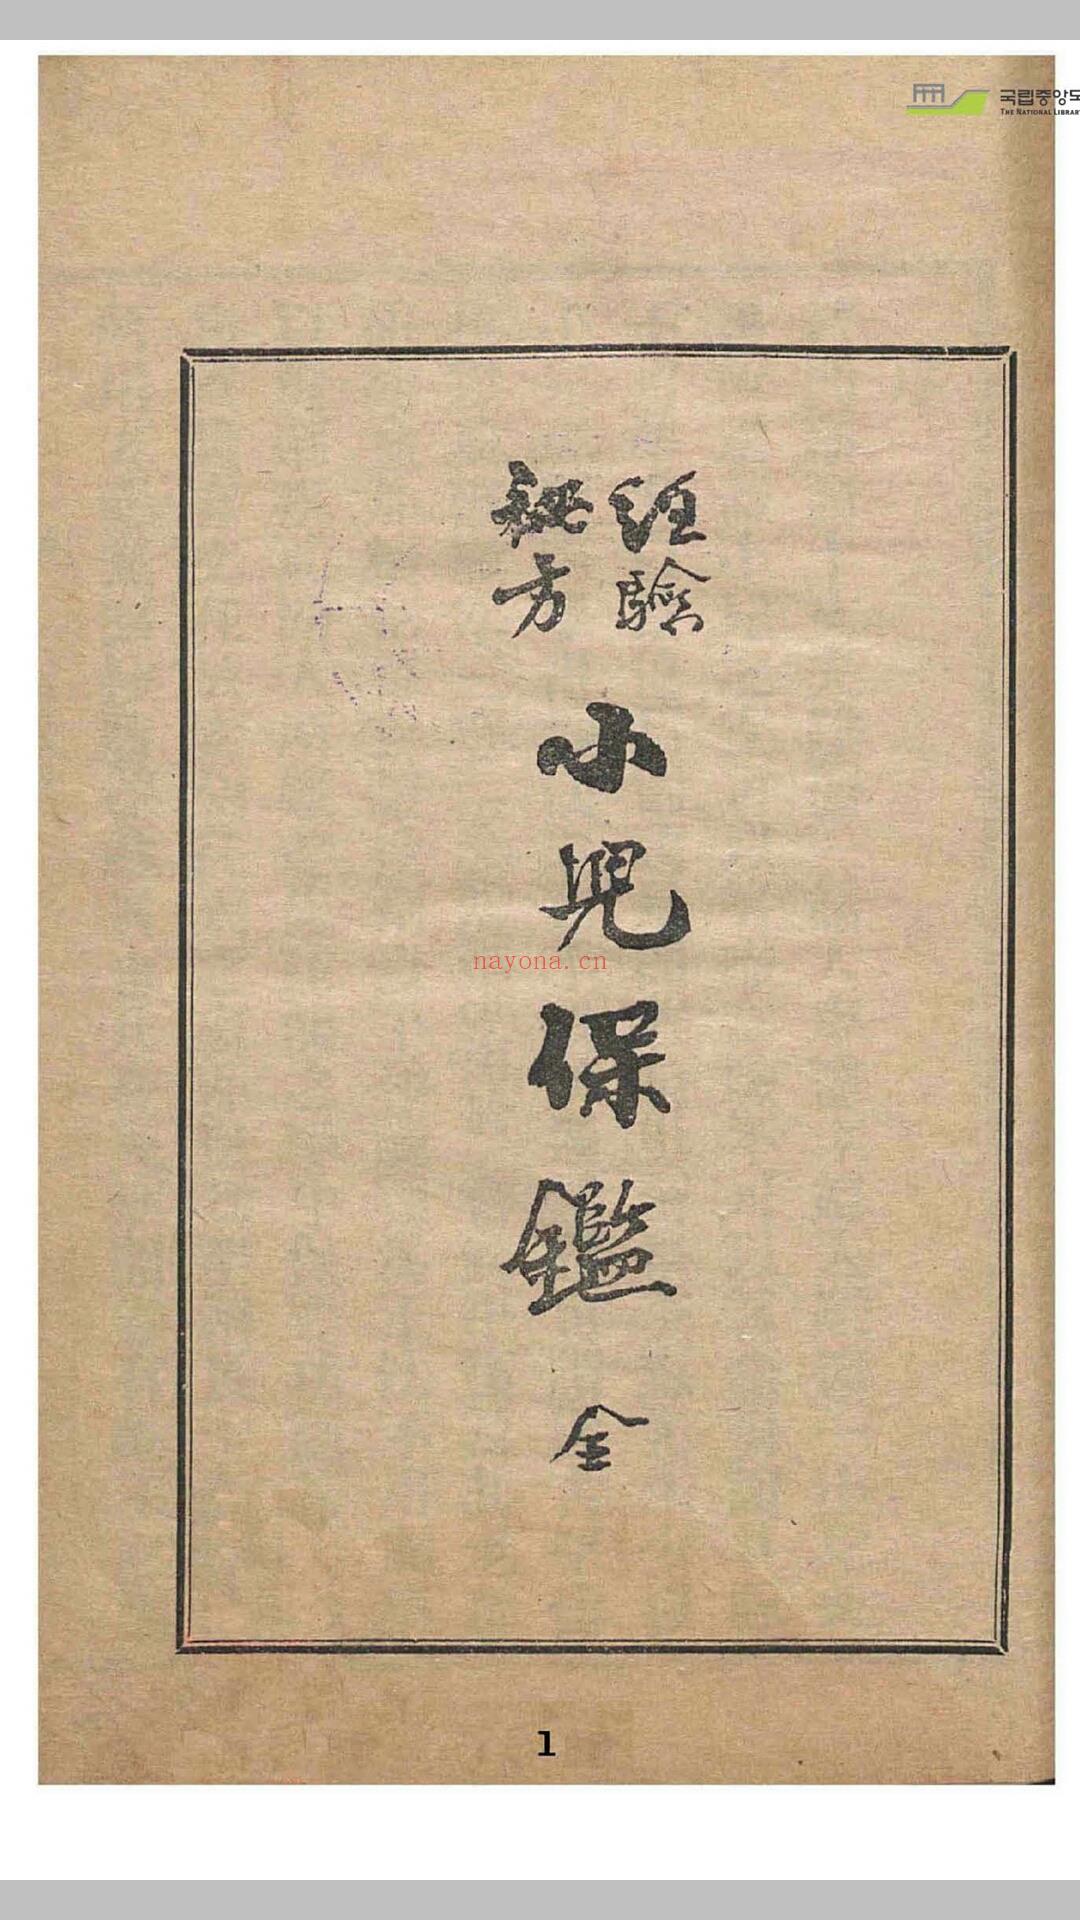 국립중앙도
THE NATIONAL LIBRARY
經驗
秘方
小兒保鑑
全
nayona.cn
1